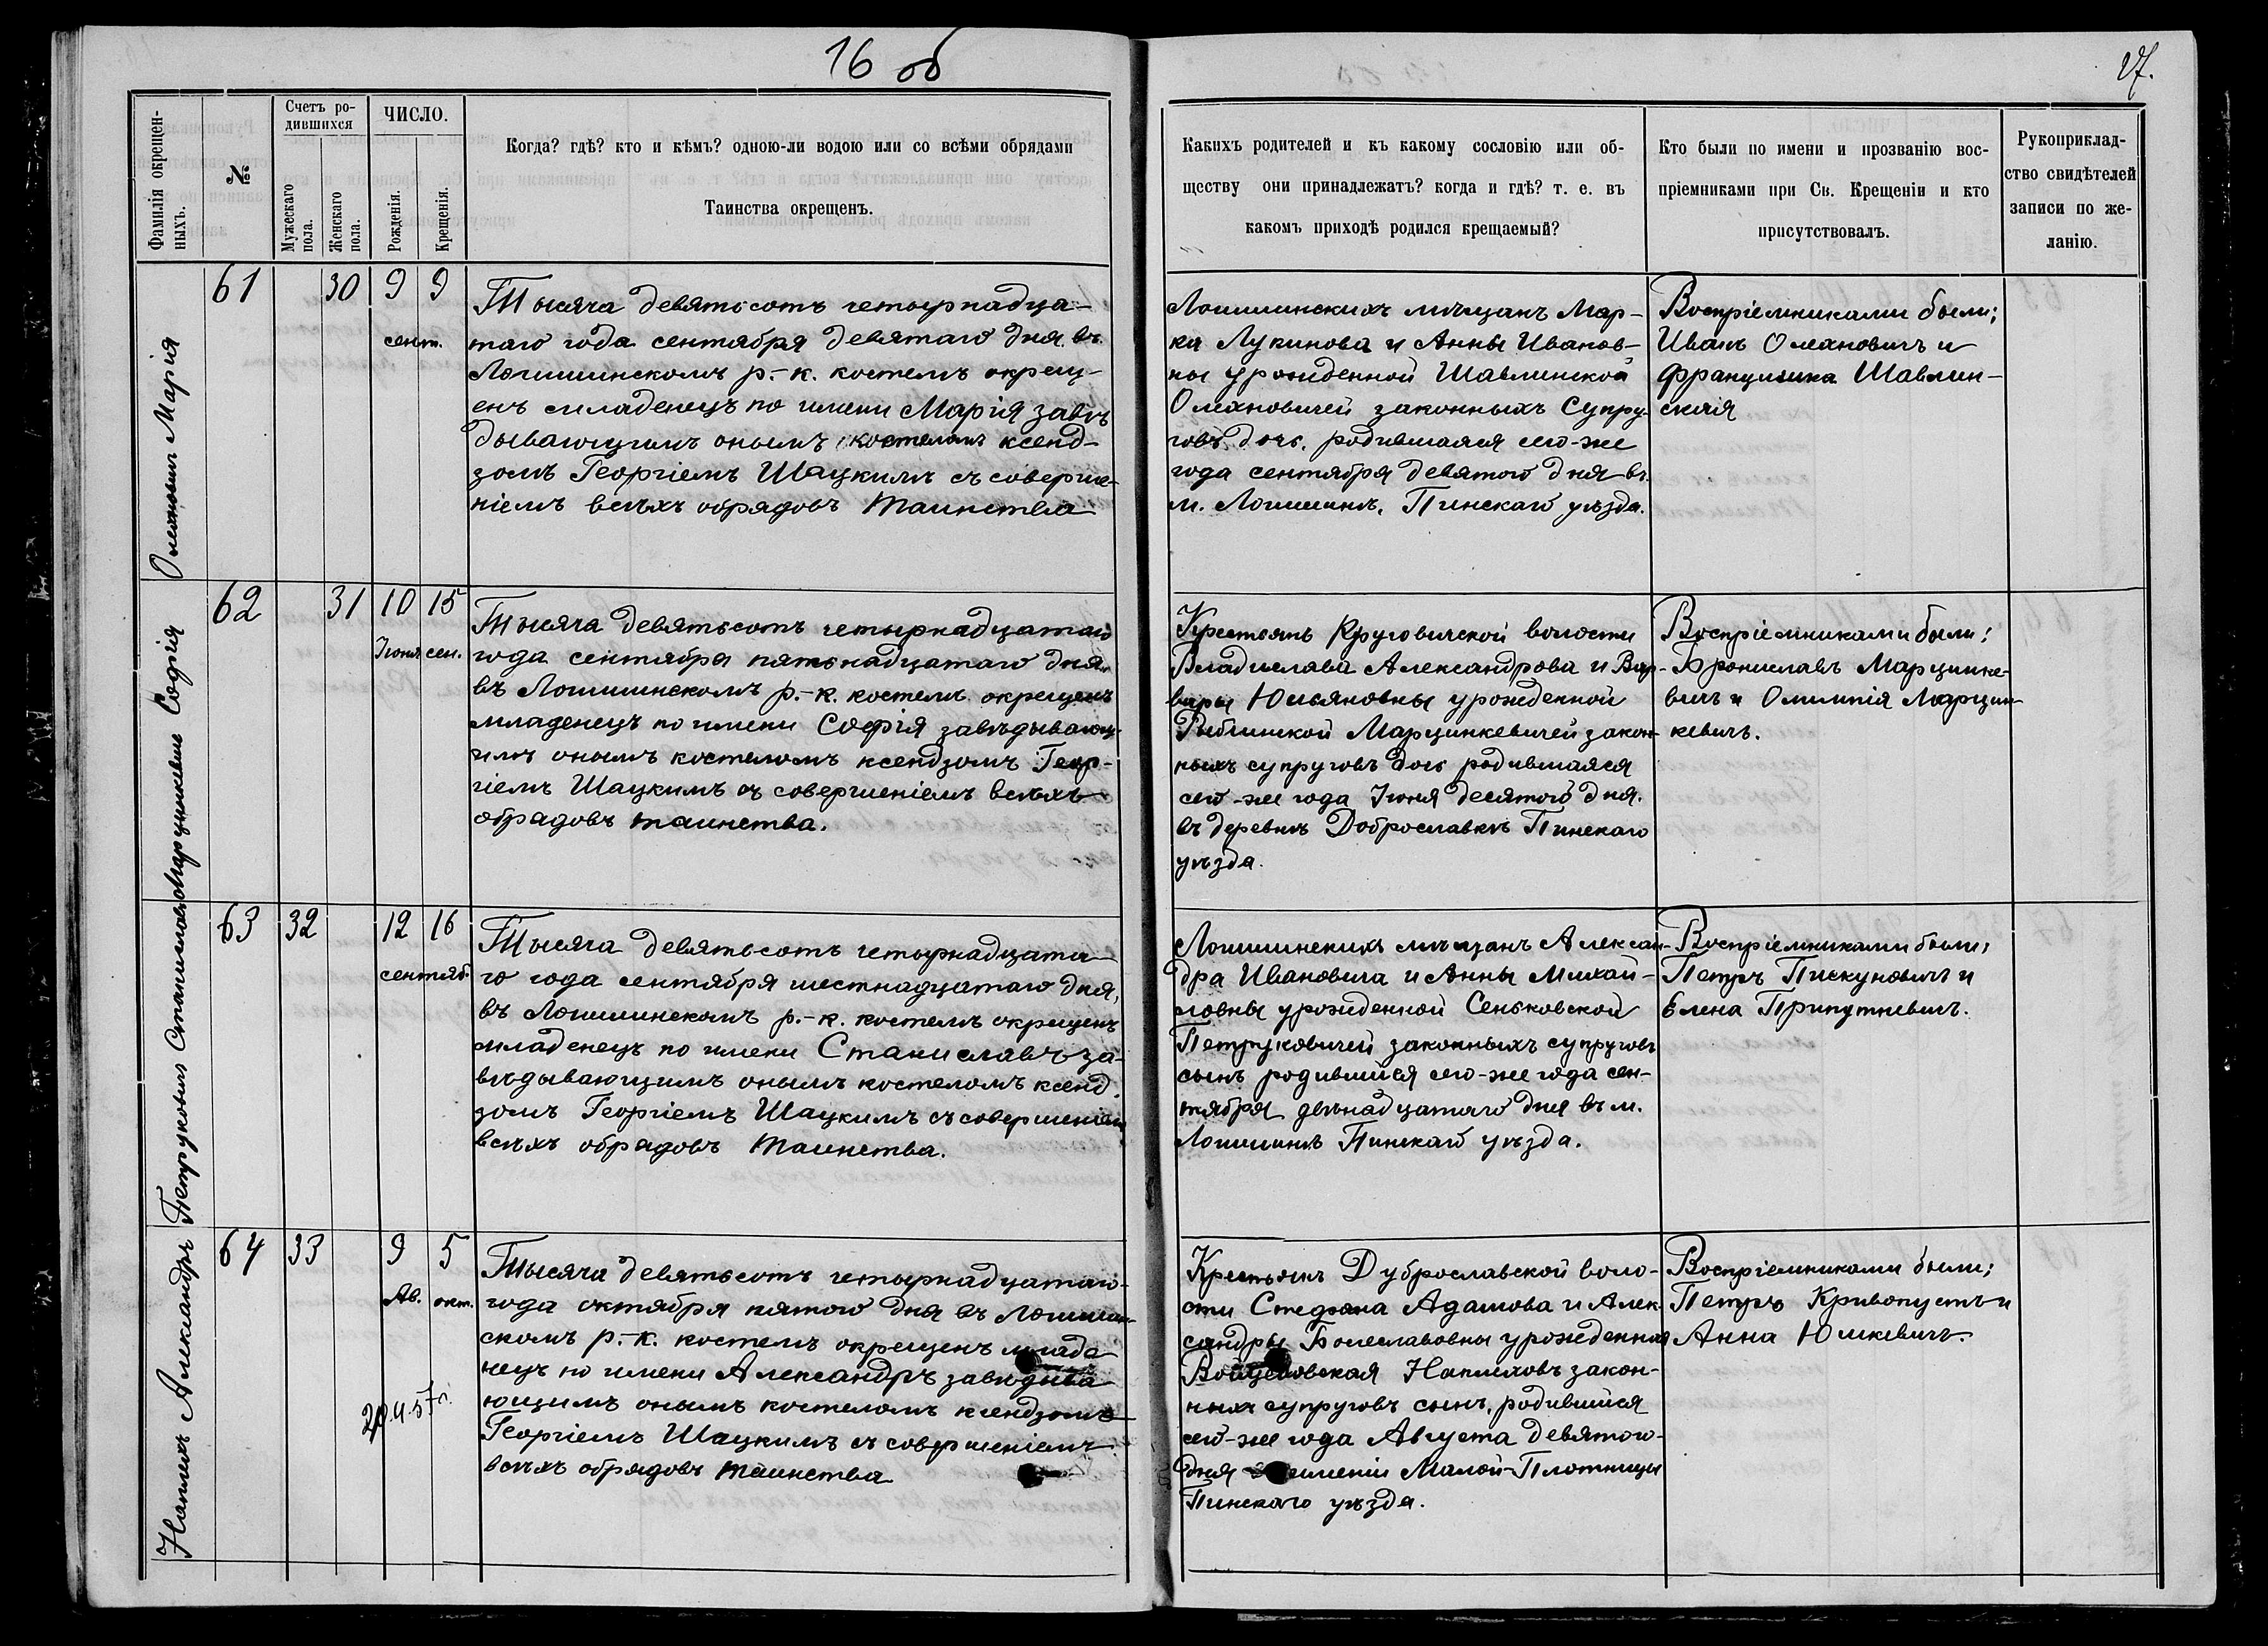 16 об
17.
Фамилія окрещен-
ныхъ.
№
Счетъ ро-
дившихся
Мужескаго
пола.
Женскаго
пола.
ЧИСЛО.
Рожденія.
Крещенія.
Когда? гдѣ? кто и кѣмъ? одною-ли водою или со всѣми обрядами
Таинства окрещенъ.
Какихъ родителей и къ какому сословію или об-
ществу они принадлежатъ? когда и гдѣ? т. е. въ
какомъ приходѣ родился крещаемый?
Кто были по имени и прозванію вос-
пріемниками при Св. Крещеніи и кто
присутствовалъ.
Рукоприклад-
ство свидѣтелей
записи по же-
ланію.
Олехновичъ Марія
61
30
9
9
сент.
Тысяча девятьсотъ четырнадца-
таго года сентября девятаго дня въ
Логишинскомъ р.-к. костелѣ окрещ-
енъ младенецъ по имени Марія завѣ
дывающимъ онымъ костеломъ ксенд-
зомъ Георгіемъ Шацкимъ съ соверше-
ніемъ всѣхъ обрядовъ Таинства
Логишинскихъ мѣщанъ Мар-
ка Лукинова и Анны Иванов-
ны урожденной Шавлинской
Олехновичей законныхъ супру-
говъ дочь, родившаяся сего-же
года сентября девятого дня въ
м. Логишинѣ, Пинскаго уѣзда.
Воспріемниками были;
Иванъ Олехновичъ и
Францишка Шавлин-
ская
Марцинкевичъ Софія
62
31
10
15
Іюня сен.
Тысяча девятьсотъ четырнадцатаго
года сентября пятьнадцатаго дня
въ Логишинскомъ р.-к. костелѣ окрещенъ
младенецъ по имени Софія завѣдывающ-
имъ онымъ костеломъ ксендзомъ Геор-
гіемъ Шацкимъ съ совершеніемъ всѣхъ
обрядовъ таинства.
Крестьянъ Круговичской волости
Владислава Александрова и Вар-
вары Юльяновны урожденной
Марцинкевичей закон-
ныхъ супруговъ дочь родившаяся
сего-же года Іюня десятого дня.
въ деревнѣ Доброславкѣ Пинскаго
уѣзда.
Воспріемниками были;
Брониславъ Марцинке-
вичъ и Олимпія Марцин-
кевичъ.
Петруковичъ Станиславъ
63
32
12
16
сентяб.
Тысяча девятьсотъ четырнадцата-
го года сентября шестнадцатаго дня,
въ Логишинскомъ р.-к. костелѣ окрещенъ
младенецъ по имени Станиславъ за-
вѣдывающимъ онымъ костеломъ ксенд-
зомъ Георгіемъ Шацкимъ съ совершеніемъ
всѣхъ обрядовъ Таинства.
Логишинскихъ мѣщанъ Алексан-
дра Ивановича и Анны Михай-
ловны урожденной Сеньковской
Петруковичей законныхъ супруговъ
сынъ родившійся сего-же года сен-
тября двѣнадцатаго дня въ м.
Логишинѣ Пинскаго уѣзда.
Воспріемниками были;
Петръ Пискуновичъ и
Елена Припутневичъ.
Александръ
64
33
9
5
Ав. окт.
Тысяча девятьсотъ четырнадцатаго
года октября пятого дня въ Логишин-
скомъ р.-к. костелѣ окрещенъ младе
нецъ по имени Александръ завѣдыва
ющимъ онымъ костеломъ ксендзомъ
Георгіемъ Шацкимъ съ совершеніемъ
всѣхъ обрядовъ таинства
Крестьянъ Дуброславской воло-
сти Стефана Адамова и Алек-
сандры Болеславовны урожденная
закон-
ныхъ супруговъ сынъ, родившійся
сего-же года Августа девятого
дня имѣніи Малой-Плотницы
Пинскаго уѣзда.
Воспріемниками были;
Петръ Кривопустъ и
Анна Юшкевичъ.